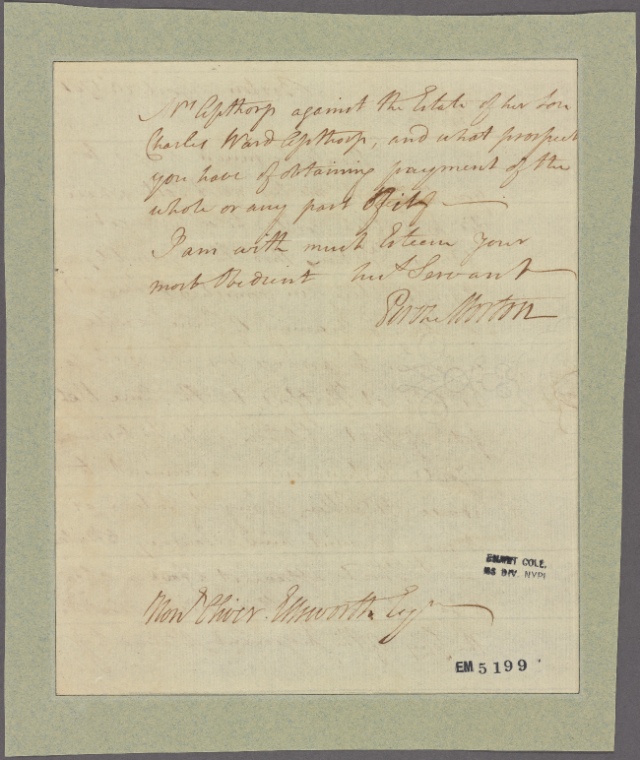 Mrs Apthorp against the Estate of her Son
Charles Ward Apthorp, and what prospect
you have of obtaining payment of the
whole or any part of it
I am with much Esteem your
most Obedient hue Servant
Perez Morton
Honle Oliver Ellsworth Esqr
EMMET COLL.
MS DIV. NYPL
EM 5199